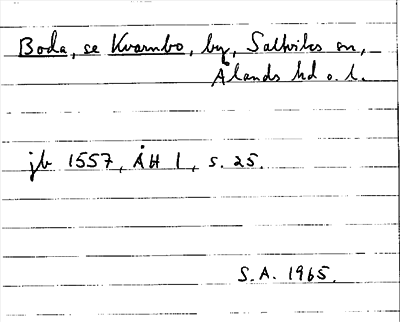 Boda, se Kvarnbo, by, Saltviks sn,
Ålands hd o. l.
jb 1557, ÅH 1, s. 25.
S.A. 1965.